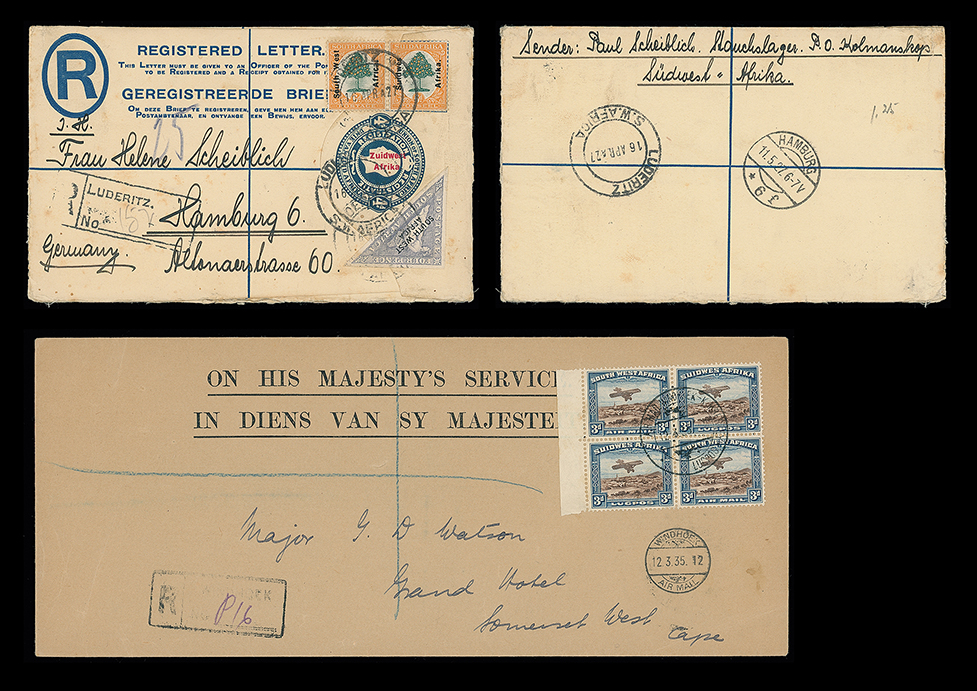 REGISTERED LETTER.
THIS LETTER MUST BE GIVEN TO AN OFFICER OF THE
TO BE REGISTERED AND A RECEIPT OBTAINED FOR
GEREGISTREERDE BRIE
OM DEZE BRIEF TE REGISTREREN, GEVE MEN HEM AAN
POSTAMBTENAAR, EN ONTVANGE EEN BEWIJS, ERVOOR.
R
J. H.
25
Frau Helene Scheiblich
Hamburg 6.
Germany. Altonaerstrasse 60.
R
LUDERITZ.
No.
SOUTH AFRICA
SUIDAFRIKA
South West Africa.
Suidwes Afrika.
Zuidwest
Afrika.
SOUTH WEST
AFRICA
FOURPENCE
LUDERITZ
S.W. AFRICA
Sender: Paul Scheiblich. P.O. Kolmanskop
Südwest = Afrika.
1,25
S.W.AFRICA
16 APR 27
LUDERITZ
HAMBURG
11.5.27. 6-7V
* 6
ON HIS MAJESTY'S SERVICE
IN DIENS VAN SY MAJESTE
SOUTH WEST AFRICA
3d AIR MAIL 3d
SUIDWES AFRIKA
3d LUGPOS 3d
SUIDWES AFRIKA
3d LUGPOS 3d
SOUTH WEST AFRICA
3d AIR MAIL 3d
WINDHOEK
12.3.35. 12
AIR MAIL
Major G D Watson
Grand Hotel
Somerset West
Cape
R
P16